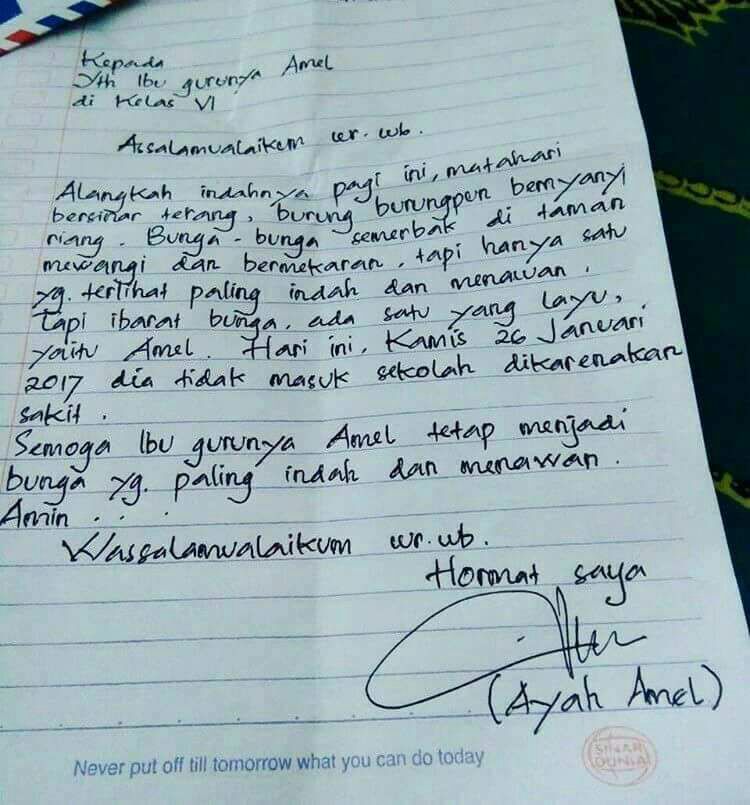 Kepada
Yth Ibu gurunya Amel
di Kelas VI
Assalamualaikum wr. wb.
Alangkah indahnya pagi ini, matahari
bersinar terang, burung burungpun bernyanyi
riang. Bunga-bunga semerbak di taman
mewangi dan bermekaran, tapi hanya satu
yg. terlihat paling indah dan menawan.
Tapi ibarat bunga, ada satu yang layu,
yaitu Amel. Hari ini, Kamis 26 Januari
2017 dia tidak masuk sekolah dikarenakan
sakit.
Semoga Ibu gurunya Amel tetap menjadi
bunga yg. paling indah dan menawan.
Amin...
Wassalamualaikum wr.wb.
Hormat saya
(Ayah Amel)
Never put off till tomorrow what you can do today
SINAR
DUNIA